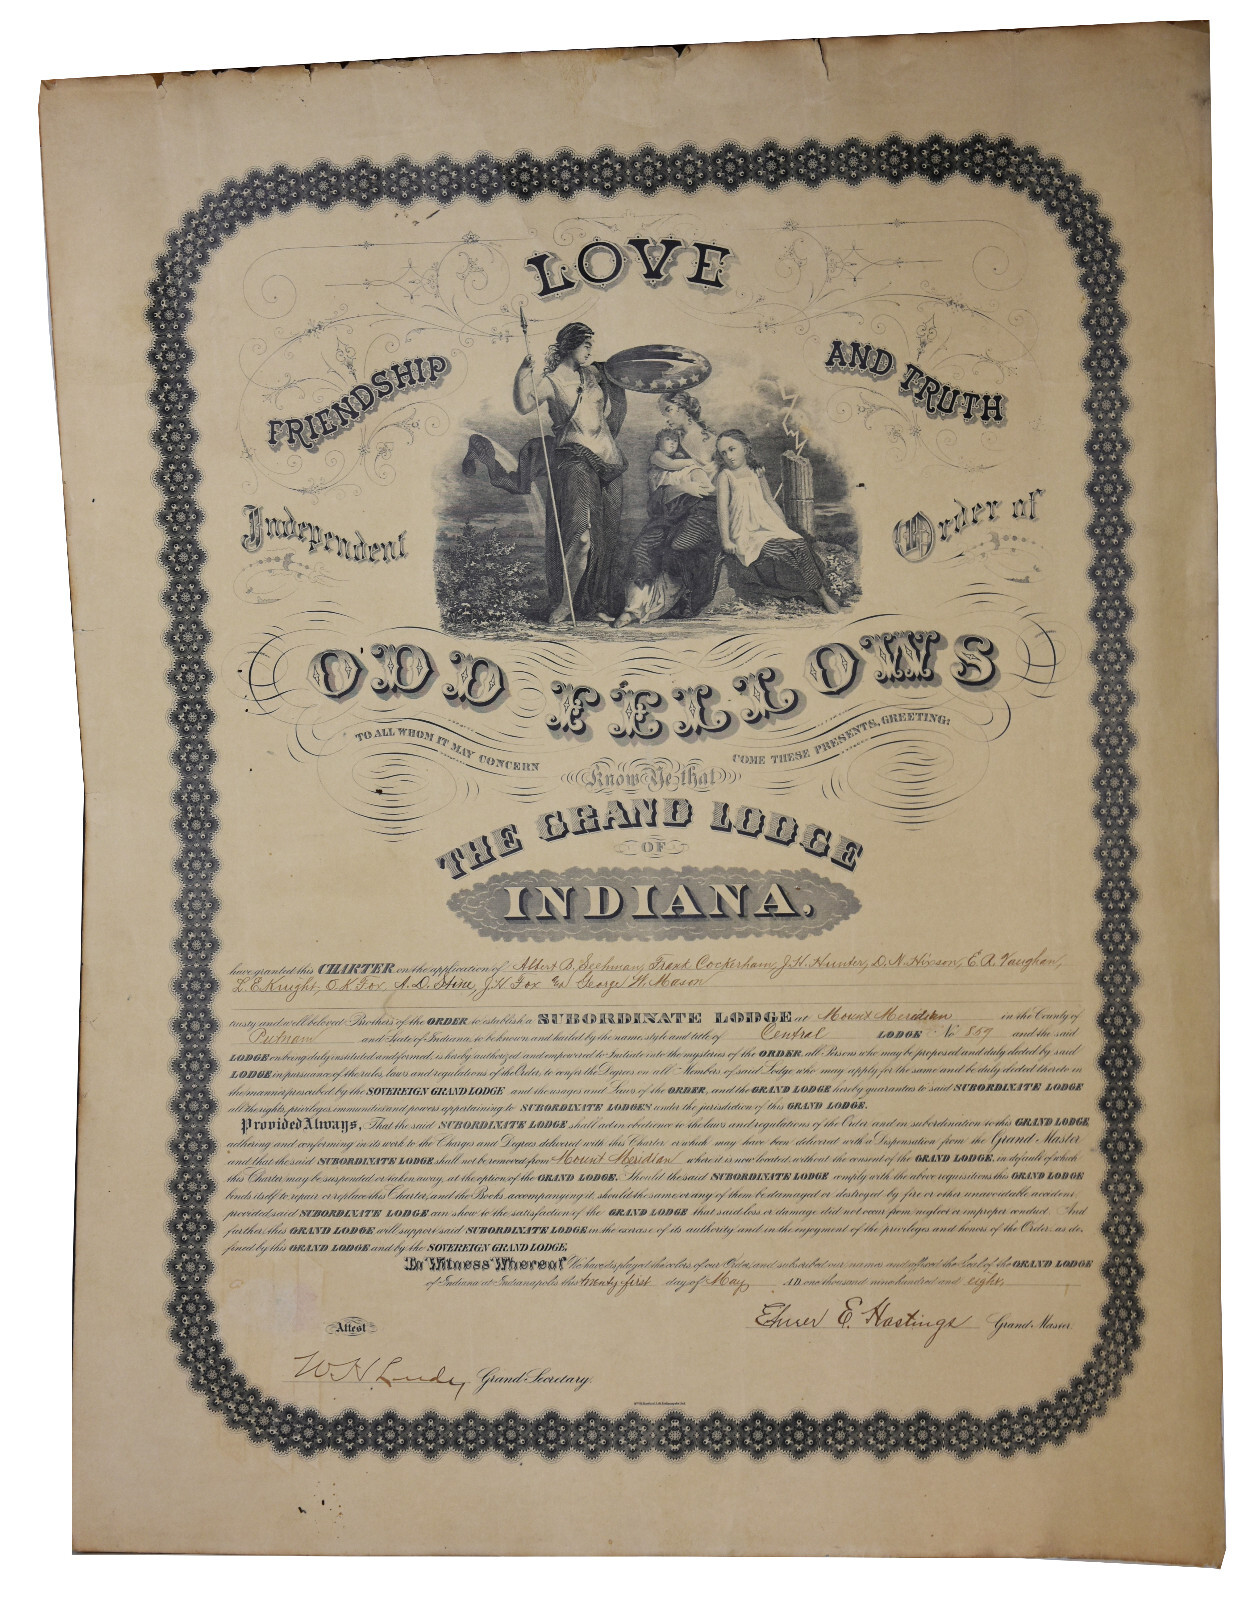 LOVE
FRIENDSHIP
AND TRUTH
Independent
Order of
ODD FELLOWS
TO ALL WHOM IT MAY CONCERN
COME THESE PRESENTS, GREETING:
Know Ye that
THE GRAND LODGE
OF
INDIANA.
have granted this CHARTER on the application of Albert B. Frank Cockerham, J. H. Hunter, D. N. Hixson, E. A. Vaughan,
L. E. Knight, O. K. Fox, A. D. Stine, J. H. Fox & George W. Mason
trusty and well beloved Brothers of the ORDER to establish a SUBORDINATE LODGE at Mount Meridian in the County of
Putnam and State of Indiana, to be known and hailed by the name, style and title of Central LODGE No. 859 and the said
LODGE on being duly instituted and formed, is hereby authorized and empowered to Initiate into the mysteries of the ORDER, all Persons who may be proposed and duly elected by said
LODGE in pursuance of the rules, laws and regulations of the Order, to confer the Degrees on all Members of said Lodge who may apply for the same and be duly elected thereto in
the manner prescribed by the SOVEREIGN GRAND LODGE and the usages and Laws of the ORDER, and the GRAND LODGE hereby guarantee to said SUBORDINATE LODGE
all the rights, privileges, immunities and powers appertaining to SUBORDINATE LODGES under the jurisdiction of this GRAND LODGE.
Provided Always, That the said SUBORDINATE LODGE shall act in obedience to the laws and regulations of the Order and in subordination to this GRAND LODGE
adhering and conforming in its work to the Charges and Degrees delivered with this Charter or which may have been delivered with a Dispensation from the Grand Master
and that the said SUBORDINATE LODGE shall not be removed from Mount Meridian where it is now located, without the consent of the GRAND LODGE, in default of which
this Charter may be suspended or taken away, at the option of the GRAND LODGE. Should the said SUBORDINATE LODGE comply with the above requisitions this GRAND LODGE
binds itself to repair or replace this Charter, and the Books accompanying it, should the same or any of them be damaged or destroyed by fire or other unavoidable accident,
provided said SUBORDINATE LODGE can show to the satisfaction of the GRAND LODGE that said loss or damage did not occur from neglect or improper conduct. And
further, this GRAND LODGE will support said SUBORDINATE LODGE in the exercise of its authority and in the enjoyment of the privileges and honors of the Order, as de-
fined by this GRAND LODGE and by the SOVEREIGN GRAND LODGE.
In Witness Whereof We have displayed the colors of our Order, and subscribed our names and affixed the Seal of the GRAND LODGE
of Indiana at Indianapolis this twenty-first day of May AD one thousand nine hundred and eight
Elmer E. Hastings Grand Master.
Attest
W H Leedy Grand Secretary.